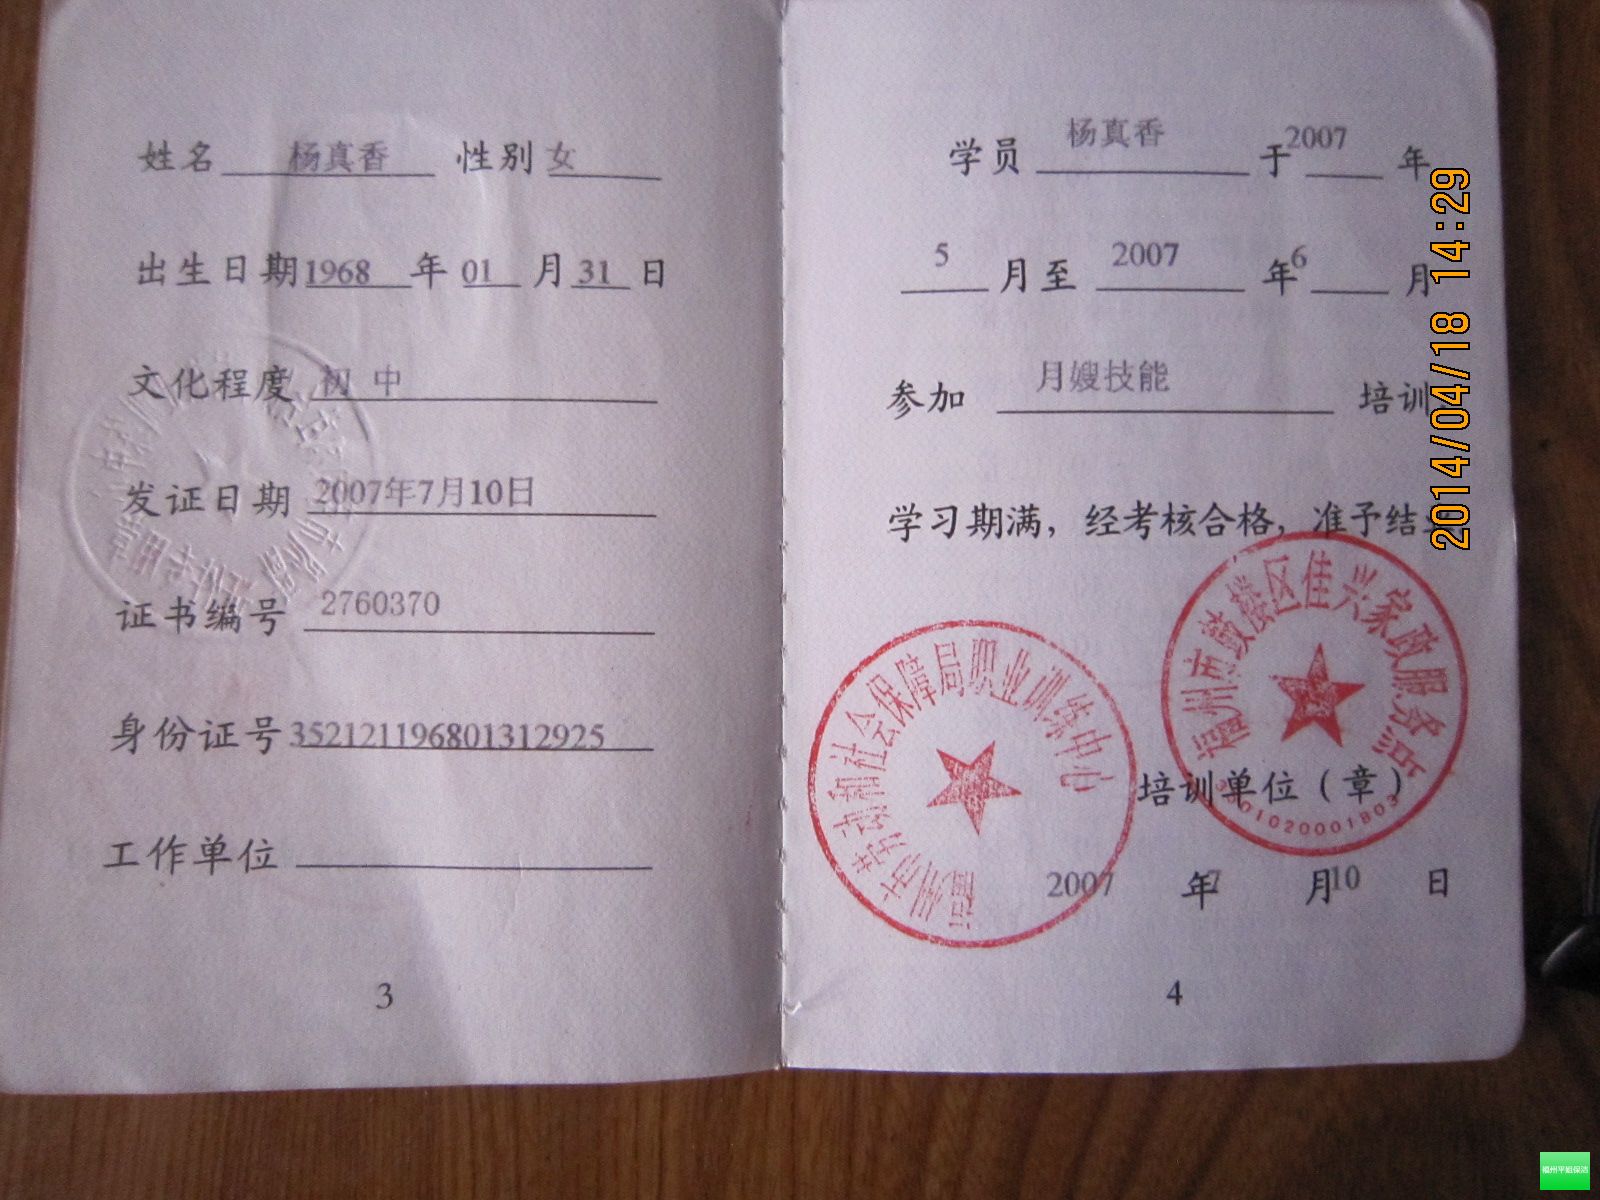 姓名 杨真香 性别 女
出生日期 1968 年 01 月 31 日
文化程度 初 中
发证日期 2007年7月10日
证书编号 2760370
身份证号 352121196801312925
工作单位
3
学员 杨真香 于 2007 年
5 月至 2007 年 6 月
参加 月嫂技能 培训
学习期满，经考核合格，准予结
福州市鼓楼区佳兴家政服务部
福州市劳动和社会保障局职业训练中心
培训单位（章）
2007 年 7 月 10 日
4
2014/04/18 14:29
福州平姐保洁